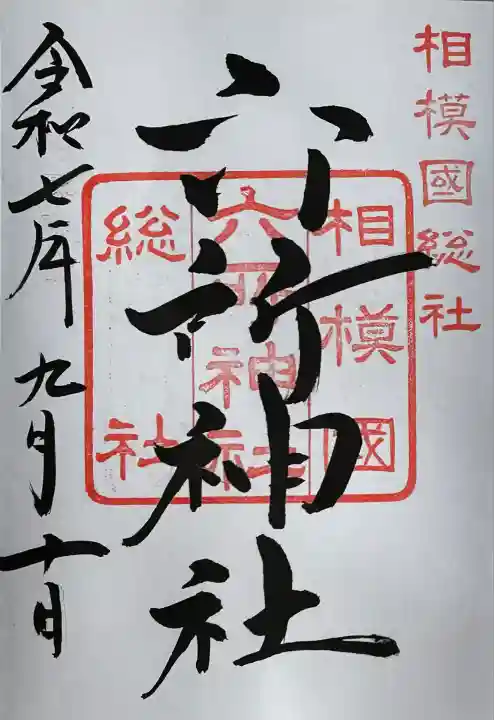 相模國総社
相模國
六所神社
総社
六所神社
令和七年九月十日